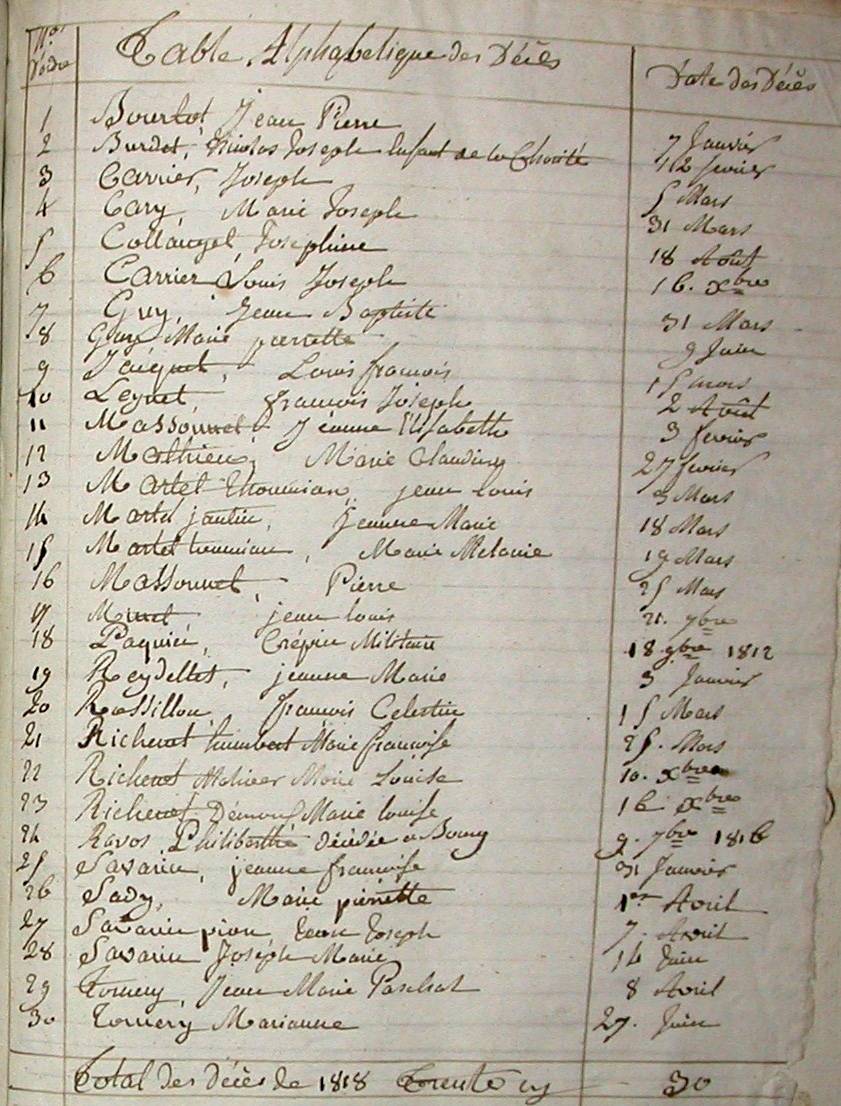 Nos d'ordre Table Alphabetique des Décès Date des Décès
1 Bourlot Jean Pierre 7 Janvier
2 Burdet, Nicolas Joseph Enfant de la Charité 12 fevrier
3 Carrier, Joseph 5 Mars
4 Cary, Marie Joseph 31 Mars
5 Collanget, Josephine 18 Août
6 Carrier Louis Joseph 16. Xbre
7 Guy, Jean Baptiste 31 Mars
8 Guy Marie pierrette 9 Juin
9 Jaiquet, Louis francois 15 mars
10 Leynet, francois Joseph 2 Août
11 Massonnet Jeanne Elisabeth 3 fevrier
12 Mathieu, Marie Claudine 27 fevrier
13 Martel thonnian, jean louis 3 Mars
14 Martel jantin, Jeanne Marie 18 Mars
15 Martel thonnian, Marie Melanie 19 Mars
16 Massonnet, Pierre 25 Mars
17 Minet jean louis 21. 7bre
18 Paquier, Crépin Militaire 18 9bre 1812
19 Reydellet, jeanne Marie 3 Janvier
20 Rossillon francois Celestin 15 Mars
21 Richerot humbert Marie francoise 25. Mars
22 Richerot Marie Louise 10. Xbre
23 Richerot Marie louise 16 Xbre
24 Ravos Philiberthe décédée a Bourg 9. 7bre 1816
25 Savarin, jeanne francoise 31 Janvier
26 Sady, Marie pierrette 1er Avril
27 Savarin pion Jean Joseph 7. Avril
28 Savarin Joseph Marie 14 Juin
29 Tornery Jean Marie Paschal 8 Avril
30 Tornery Marianne 27. Juin
Total des Décès de 1818 Trente cy 30